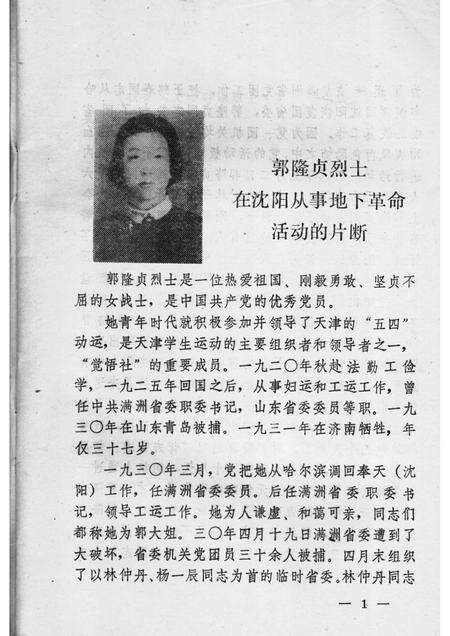 郭隆贞烈士
在沈阳从事地下革命
活动的片断
郭隆贞烈士是一位热爱祖国、刚毅勇敢、坚贞不
屈的女战士，是中国共产党的优秀党员。
她青年时代就积极参加并领导了天津的“五四”
动运，是天津学生运动的主要组织者和领导者之一，
“觉悟社”的重要成员。一九二〇年秋赴法勤工俭
学，一九二五年回国之后，从事妇运和工运工作，曾
任中共满洲省委职委书记，山东省委委员等职。一九
三〇年在山东青岛被捕。一九三一年在济南牺牲，年
仅三十七岁。
一九三〇年三月，党把她从哈尔滨调回奉天（沈
阳）工作，任满洲省委委员。后任满洲省委职委书
记，领导工运工作。她为人谦虚、和蔼可亲，同志们
都称她为郭大姐。三〇年四月十九日满洲省委遭到了
大破坏，省委机关党团员三十余人被捕。四月末组织
了以林仲丹、杨一辰同志为首的临时省委。林仲丹同志
— 1 —